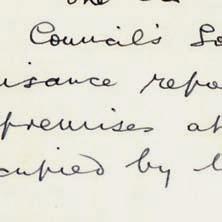 the
Council's So
isance repo
premises at
cupied by